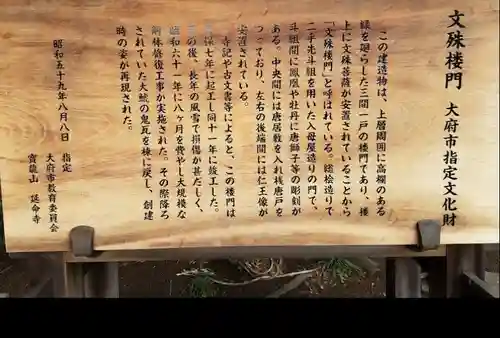 文殊楼門 大府市指定文化財
この建造物は、上層周囲に高欄のある
縁を廻らした三間一戸の楼門であり、楼
上に文殊菩薩が安置されていることから
「文殊楼門」と呼ばれている。総桧造りで
二手先斗組を用いた入母屋造りの門で、
斗組間に鳳凰や牡丹に唐獅子等の彫刻が
ある。中央間には唐居敷を入れ桟唐戸を
つっており、左右の後端間には仁王像が
安置されている。
寺記や古文書等によると、この楼門は
七年に起工し同十一年に竣工した。
の後、長年の風雪で損傷が甚だしく、
昭和六十一年に八ヶ月を費やし大規模な
解体修復工事が実施された。その際降ろ
されていた大鯱の鬼瓦を棟に戻し、創建
時の姿が再現された。
昭和五十九年八月八日 指定
大府市教育委員会
宝龍山 延命寺